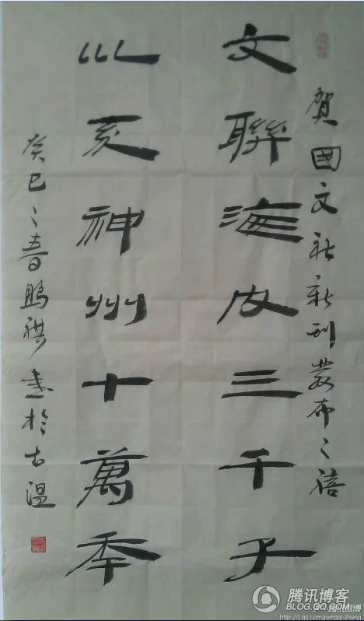 賀國文社新刊發布之禧
文聯海内三千子
神州十萬年
癸巳之春鵬祺書於古溫
腾讯博客
BLOG.QQ.COM